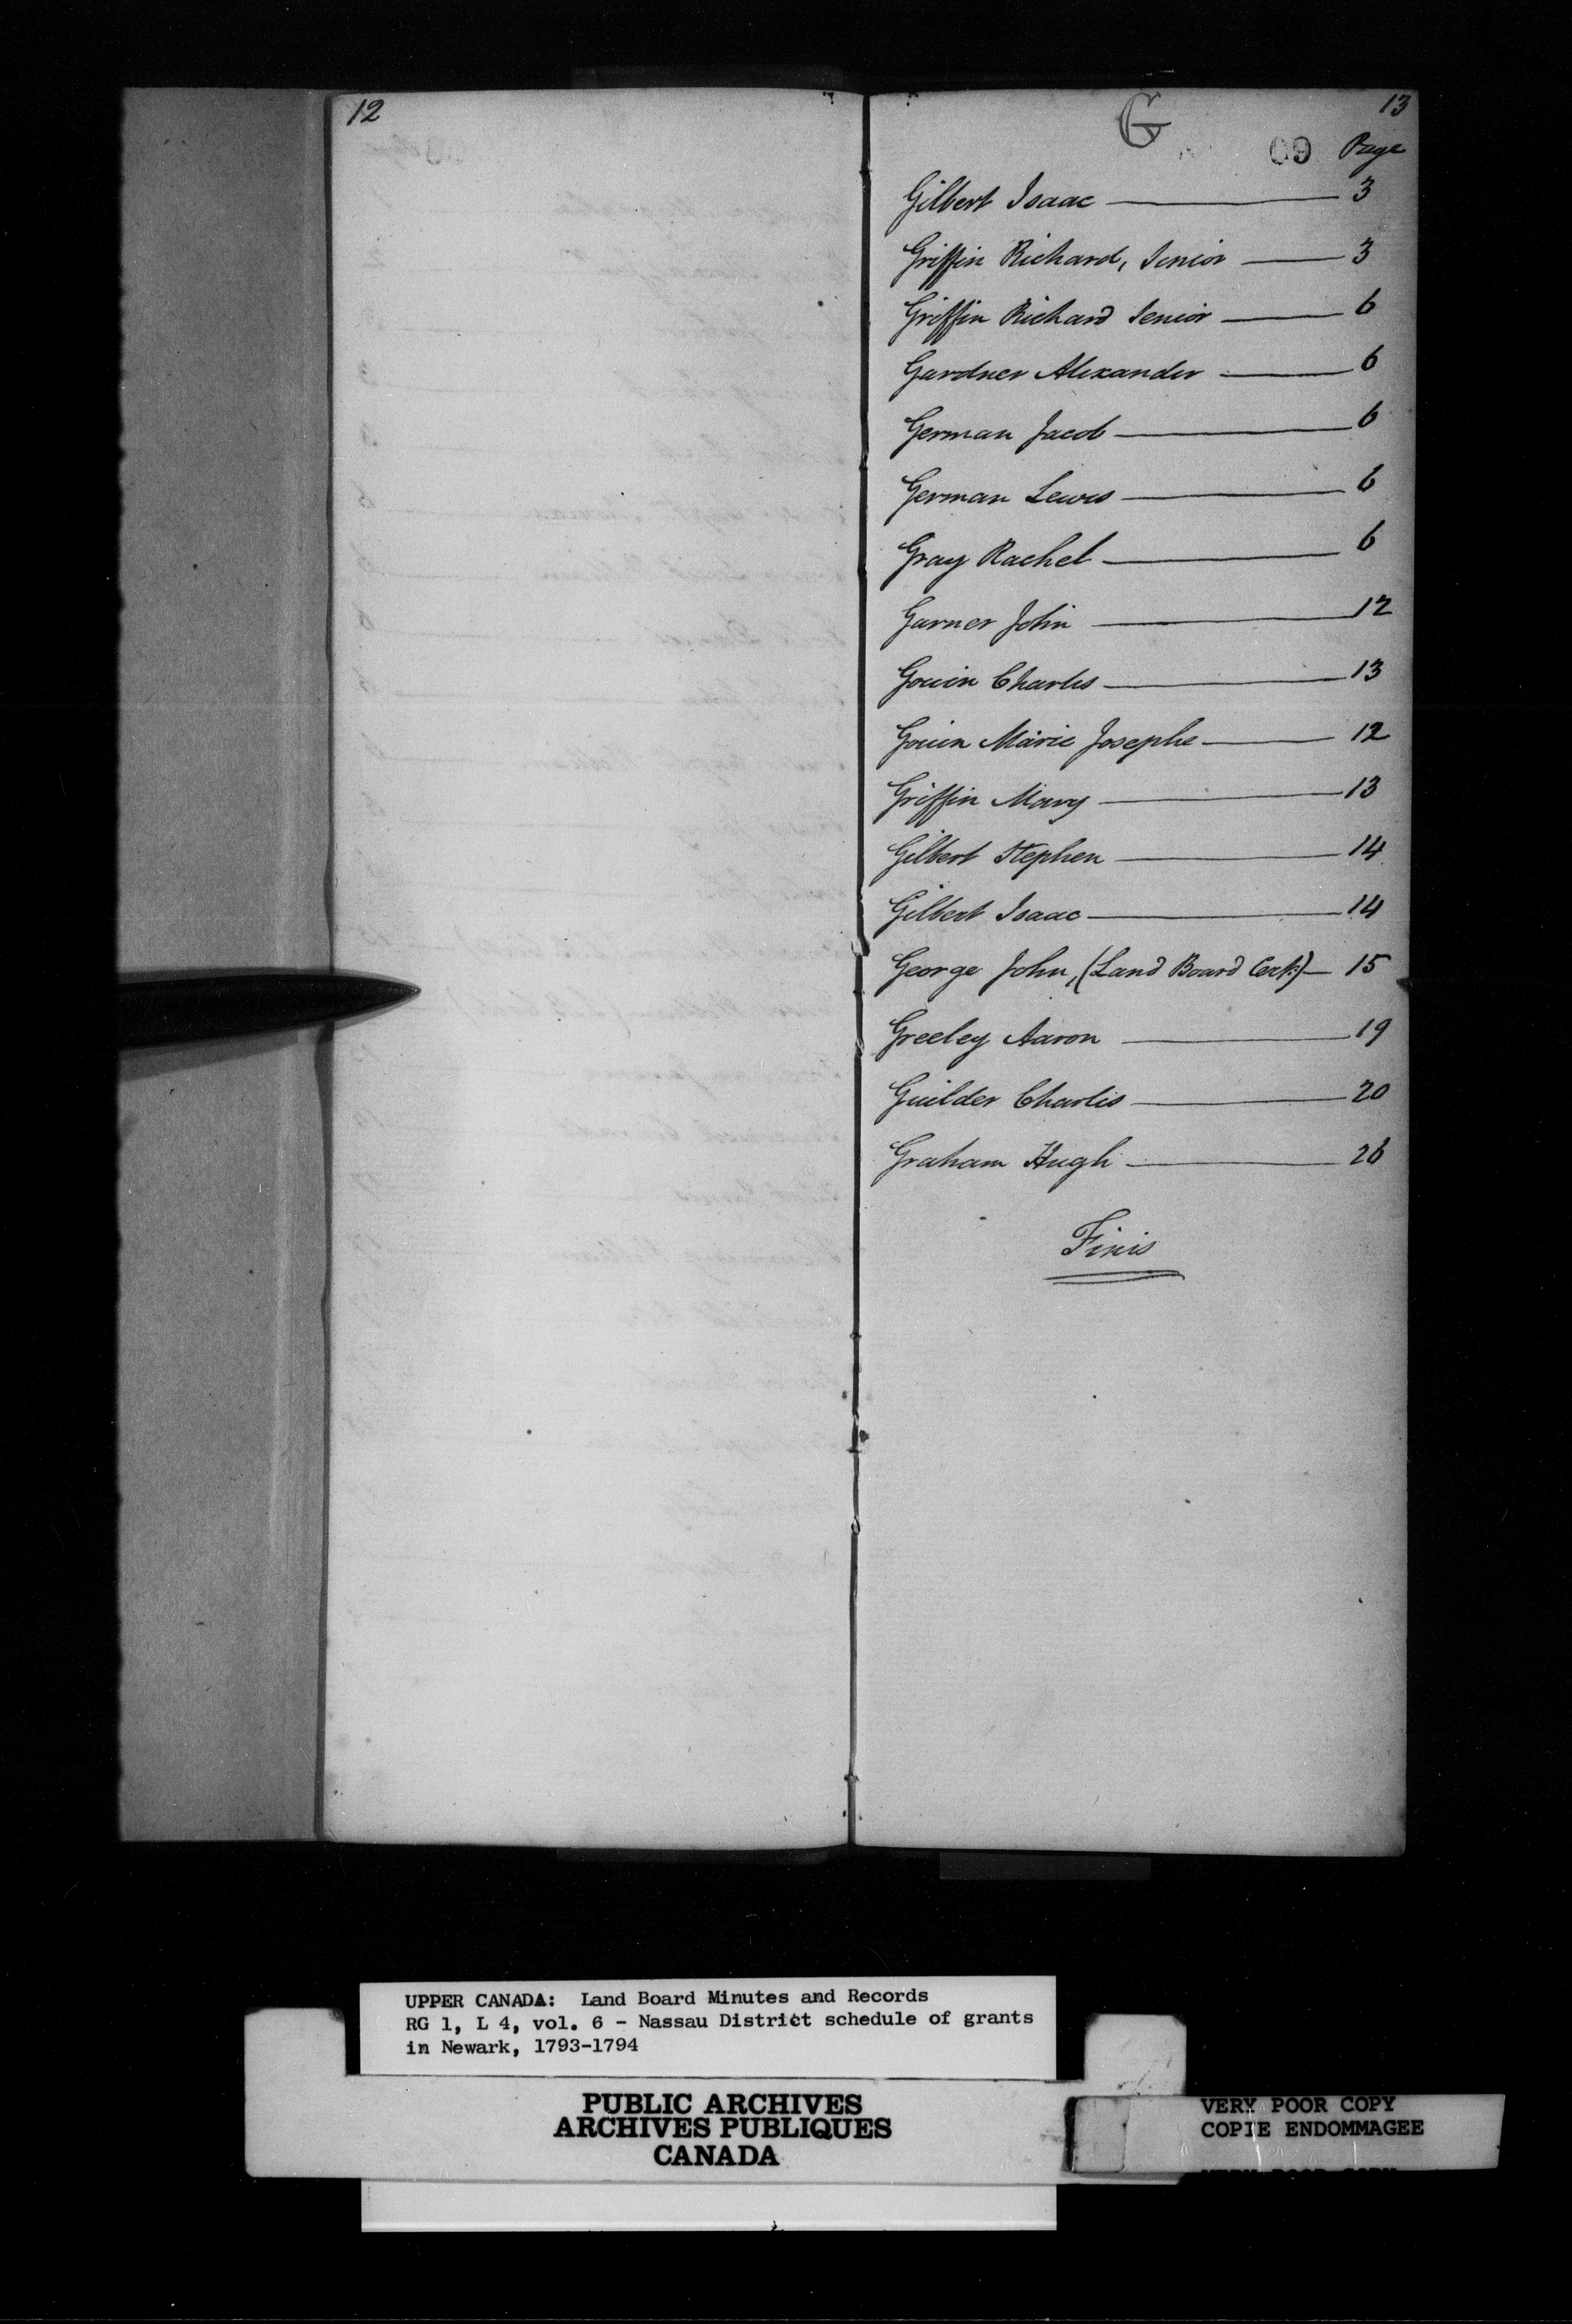 12
G
13
09 Page
Gilbert Isaac 3
Griffin Richard, Senior 3
Griffin Richard Senior 6
Gardner Alexander 6
German Jacob 6
German Lewis 6
Gray Rachel 6
Garner John 12
Gouin Charles 13
Gouin Marie Josephe 12
Griffin Mary 13
Gilbert Stephen 14
Gilbert Isaac 14
George John, (Land Board Cert:) 15
Greeley Aaron 19
Guilder Charles 20
Graham Hugh 26
Finis
UPPER CANADA: Land Board Minutes and Records
RG 1, L 4, vol. 6 - Nassau District schedule of grants
in Newark, 1793-1794
PUBLIC ARCHIVES
ARCHIVES PUBLIQUES
CANADA
VERY POOR COPY
COPIE ENDOMMAGEE